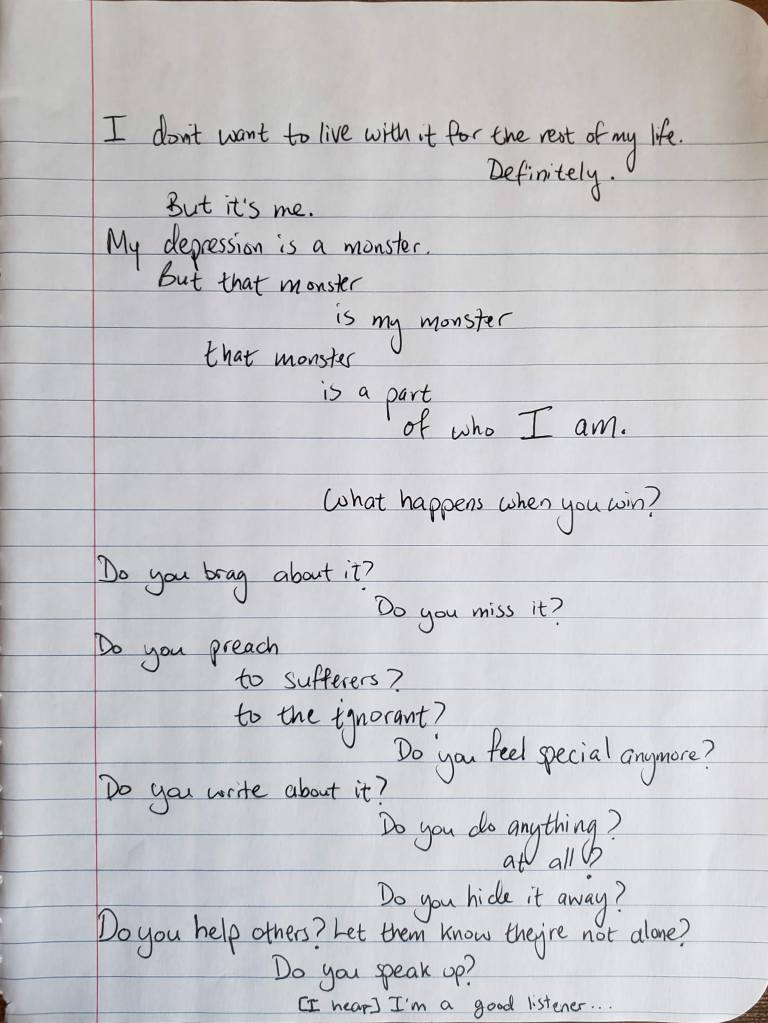 I don't want to live with it for the rest of my life.
Definitely.
But it's me.
My depression is a monster.
But that monster
is my monster
that monster
is a part
of who I am.
What happens when you win?
Do you brag about it?
Do you miss it?
Do you preach
to sufferers?
to the ignorant?
Do you feel special anymore?
Do you write about it?
Do you do anything?
at all?
Do you hide it away?
Do you help others? Let them know they're not alone?
Do you speak up?
[I hear] I'm a good listener...